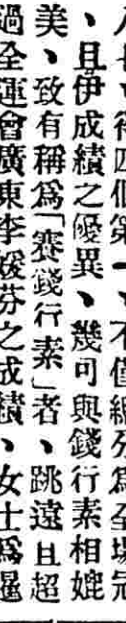 得四個第一、不僅網列爲全場冠
、且伊成績之優異、幾可與錢行素相媲
美、致有稱爲「賽錢行素」者、跳遠且超
過全運會廣東李媛芬之成績、女士爲暹